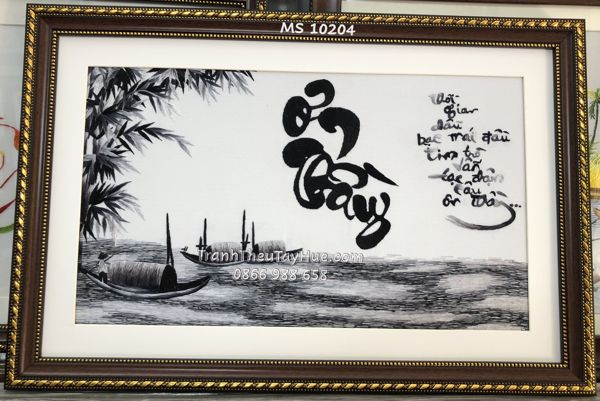 MS 10204
Ơn
Thầy
Thời
gian
dẫu
bạc mái đầu
tim trò
vẫn
tạc đậm
câu
ơn thầy...
TranhTheuTayHue.com
0866 988 658